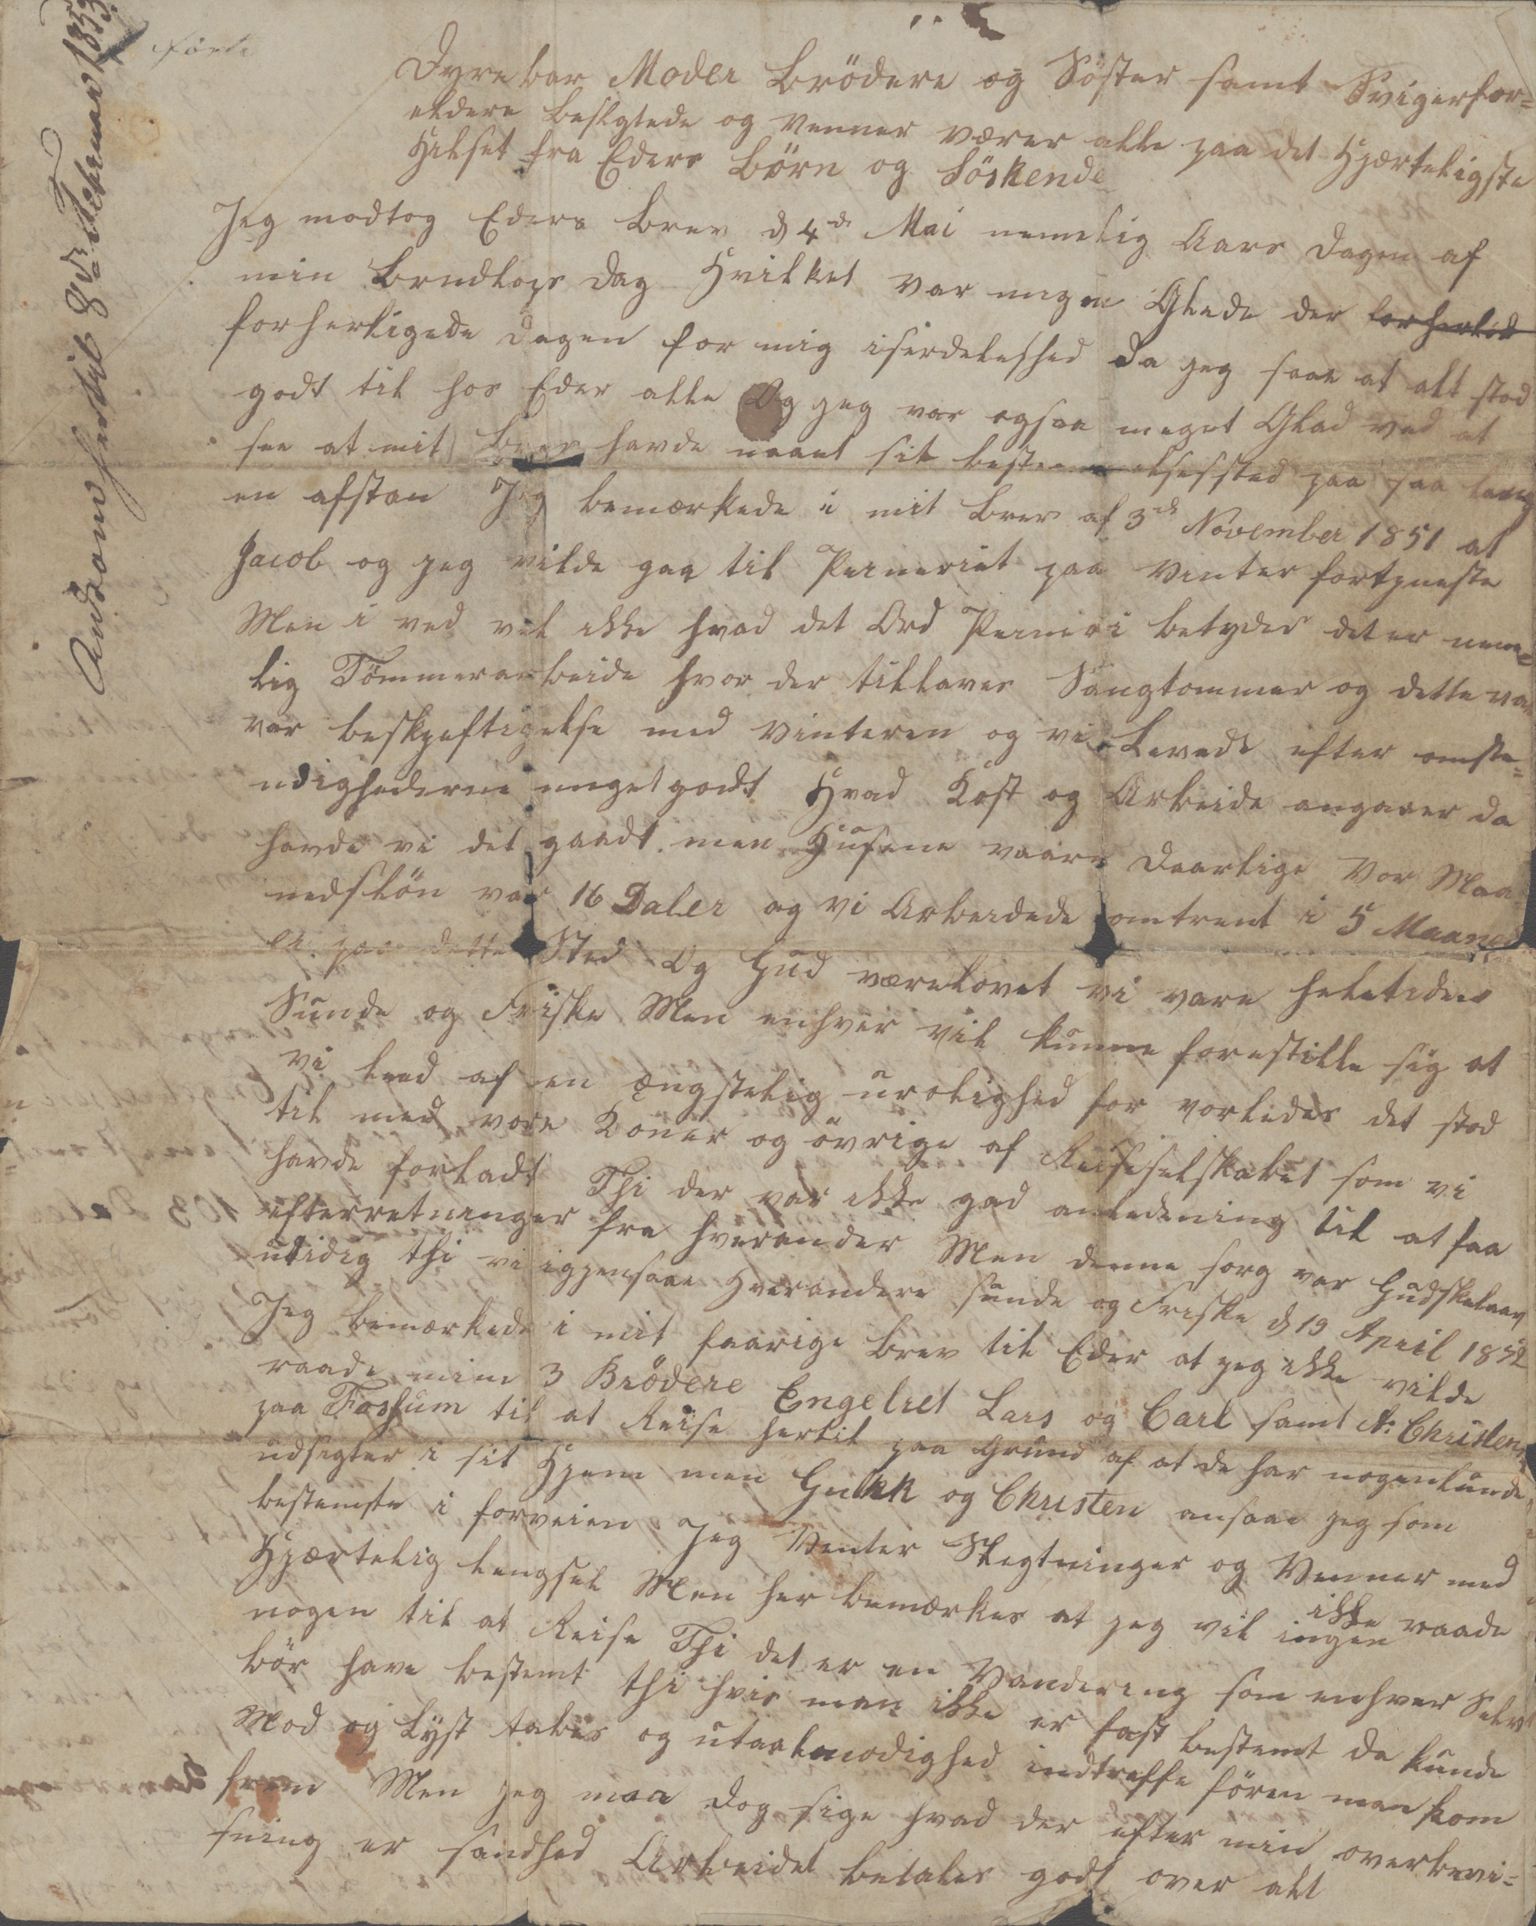 Andsend hertil 8de Februar 1853
Dyrebar Moder Brödere og Söster samt Svigerfor=
eldere beslgtede og Venner værer alle paa det Hjærteligste
Hilset fra Eders Börn og Söskende
Jeg modtog Eders Brev d 4de Mai nemelig Aars Dagen af
min Brudlops Dag Hvilket var megen Glede der forherled
forherligede Dagen for mig iserdeleshed da jeg saae at alt stod
godt til hos Eder alle Og jeg var ogsaa meget Glad ved at
see at mit Brev havde naaet sit bestemmelsessted paa saa lang
en afstan Jeg bemærkede i mit Brev af 3de November 1851 at
Jacob og jeg vilde gaa til Peineriet paa Vinter fortjeneste
Men i ved vel ikke hvad det Ord Peineri betyder det er neme=
lig Tömmerarbeide hvor der tillaves Saugtommer og dette var
vor beskjeftigelse med Vinteren og vi Levede efter omste=
ndighederne meget godt Hvad Kost og Arbeide angaaer da
havde vi det gaadt men Husene vaare Daarlige Vor Maa
nedslön var 16 Daler og vi Arbeidede omtrent i 5 Maane
er paa dette Sted Og Gud værelovet vi vare heletiden
Sunde og Friske Men enhver vil kunne forestille sig at
vi leed af en ængstelig urolighed for vorledes det stod
til med vore Koner og övrige af Reiseselskabet som vi
havde forladt Thi der var ikke god anledening til at faa
efterretninger fra hverander Men denne sorg var Gudskelaav
utidig thi vi igjensaae Hverandere sunde og Friske d 19 April 1852
Jeg bemærkede i mit faarige Brev til Eder at jeg ikke vilde
raade mine 3 Brödere Engelret Lars og Carl samt A: Christen
paa Fossum til at Reise hertil paa Grund af at de har nogenlunde
udsigter i sit Hjem men Gulkk og Christen ansaae jeg som
bestemte i forveien Jeg Venter Slegtninger og Venner med
Hjærtelig lengsel Men her bemærkes at jeg vil ingen ikke raade
nogen til at Reise Thi det er en Vandering som enhver Selv
bör have bestemt thi hvis man ikke er fast bestemt da kunde
Mod og Lyst tabes og utaalmodighed indtreffe fören man kom
frem Men jeg maa dog sige hvad der efter min overbevi=
sning er sandhed Arbeidet betales godt over alt